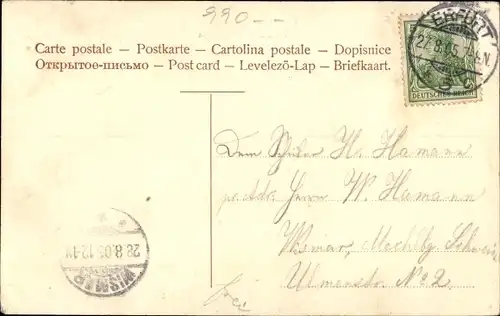 990.--
Carte postale — Postkarte — Cartolina postale — Dopisnice
Открытое-письмо — Post card — Levelezö-Lap — Briefkaart.
ERFURT
27.8.05.
* 5 c
DEUTSCHES REICH
Dem Schüler H. Hamann
pr. Adr. Herrn W. Hamann
Wismar, Mecklbg. Schwerin
Ulmenstr. No 2.
frei
WISMAR
28.8.05.12-1N